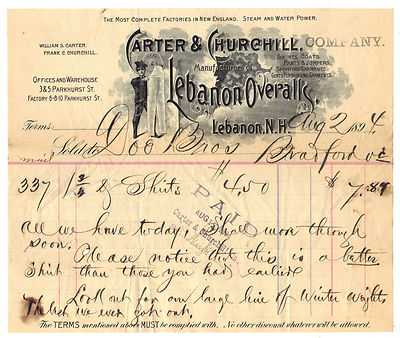 The Most Complete Factories in New England. Steam and Water Power.
WILLIAM S. CARTER
FRANK C. CHURCHILL.
CARTER & CHURCHILL,
COMPANY.
Manufacturers of
COATS,
PANTS & JUMPERS,
OFFICES AND WAREHOUSE
3 & 5 PARKHURST ST.
FACTORY 6-8-10 PARKHURST ST.
Lebanon Overalls.
Lebanon, N.H. Aug 2 1894.
Terms
Sold to Doe Bros Bradford Vt
337 1 3/4 Shirts $4.50 $7.87
PAID
AUG
Carter & Churchill
All we have today, Shall more through
soon. Please notice that this is a better
Shirt than those you had earlier
Look out for our large line of Winter weights,
The best we ever got out.
The TERMS mentioned above MUST be complied with. No other discount whatever will be allowed.